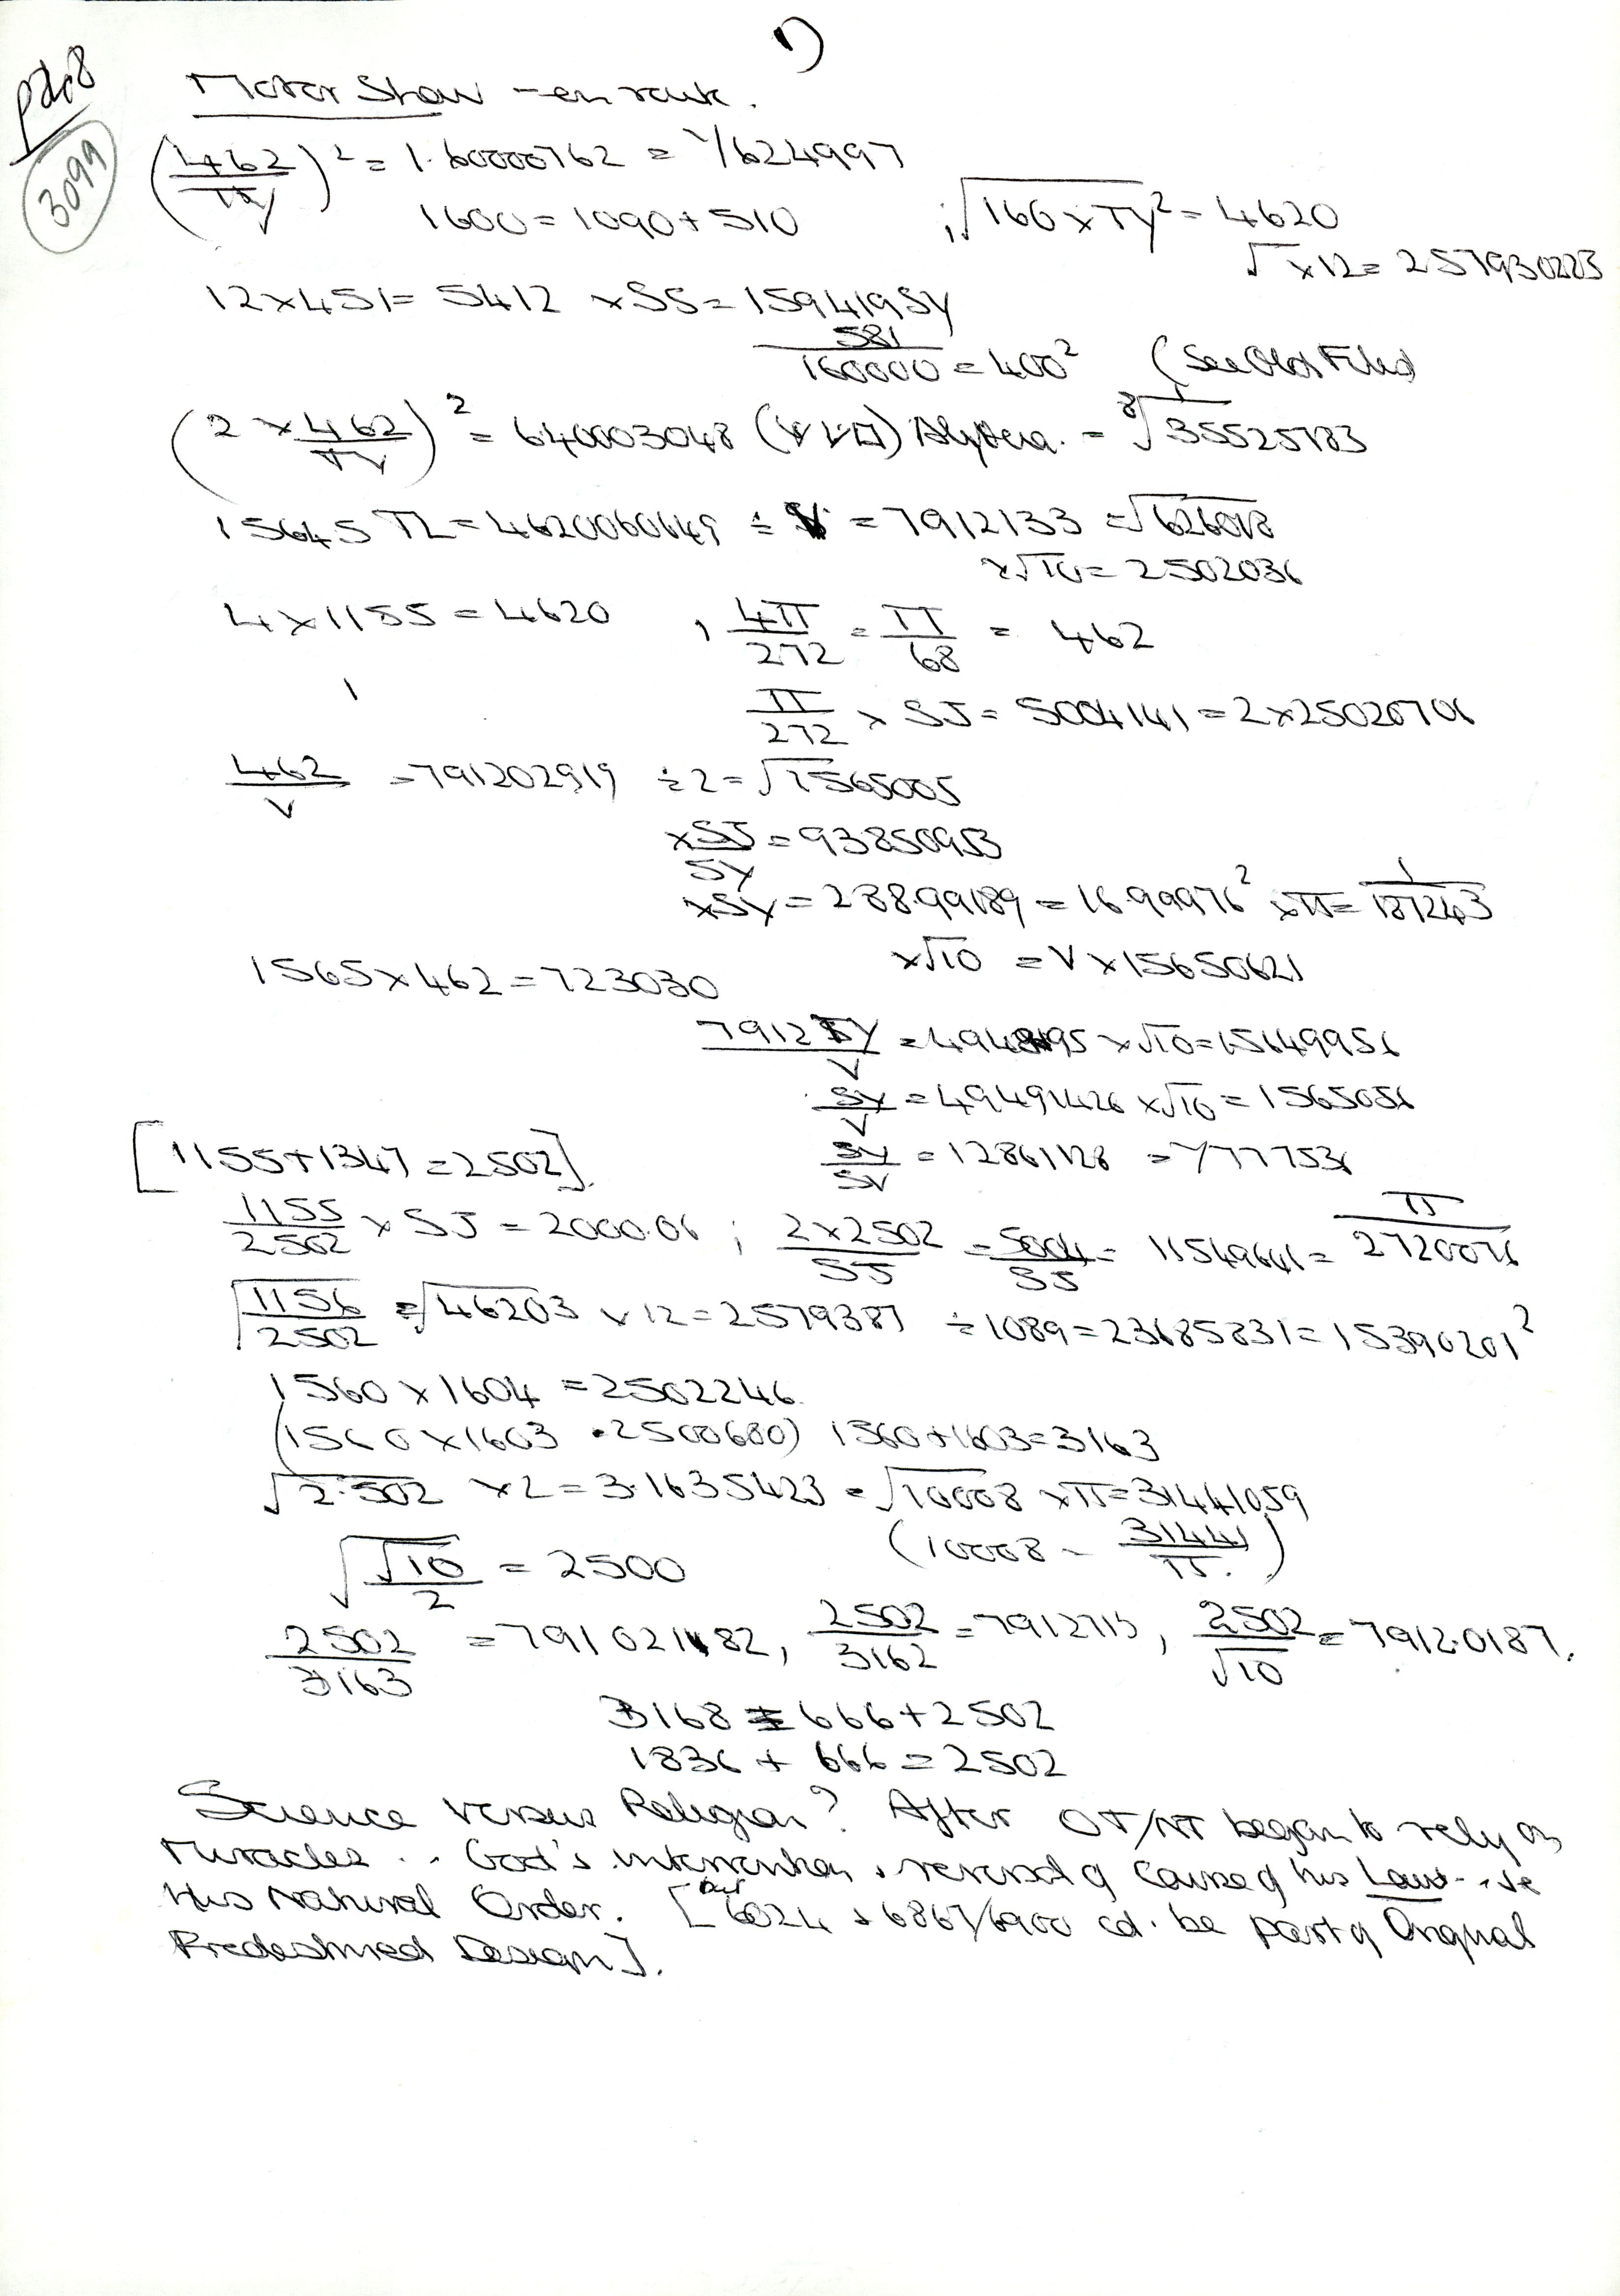 1)
3099
Motor Show - en route.
(462/TY)² = 1.60000762 = Y/624997
1600 = 1090 + 510 ; √160 x TY² = 4620
√ x 12 = 257930223
12 x 451 = 5412 x SS = 1594195Y
581
160000 = 400² (See Old Files)
(2 x 462/TV)² = 640003048 = ⁸√35525783
15645 TL = 4620060649 ÷ V = 7912133 = √626018
x √10 = 2502036
4 x 1155 = 4620 , 4π/272 = π/68 = 462
π/272 x SJ = 5004141 = 2 x 25020706
462/V = 791202919 ÷ 2 = √1565005
x SJ/SY = 93850953
x SY = 288.99189 = 16.99976² x π = 1/187243
1565 x 462 = 723030 x √10 = V x 15650621
7912 TY/V = 4948195 x √10 = 15649956
SY/V = 49491426 x √10 = 1565056
SY/SV = 12861128 = Y/77753
[1155 + 1347 = 2502]
1155/2502 x SJ = 2000.06 ; 2 x 2502/SJ = 5004/SJ = 11549641 = π/2720076
√1156/2502 = √46203 x 12 = 2579387 ÷ 1089 = 23685831 = 15390201²
1560 x 1604 = 2502246
(1560 x 1603 . 2500680) 1560 + 1603 = 3163
√2.502 x 2 = 3.1635423 = √10008 x π = 31441059
(10008 - 31441/π.)
√√10/2 = 2500
2502/3163 = 791021182, 2502/3162 = 7912713, 2502/√10 = 7912.0187.
3168 = 666 + 2502
1836 + 666 = 2502
Science versus Religion? After OT/NT began to rely on
Miracles .. God's intervention & reversal of Cause of his Laws - ie
His Natural Order. [but 6024 & 6867/6900 cd. be part of Original
Predestined Design].